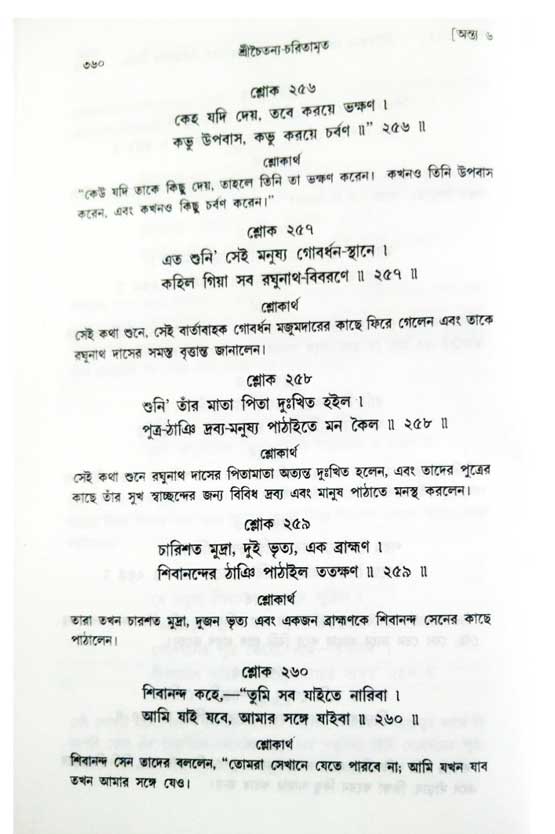 [অন্ত্য ৬
শ্রীচৈতন্য-চরিতামৃত
৩৬০
শ্লোক ২৫৬
কেহ যদি দেয়, তবে করয়ে ভক্ষণ ।
কভু উপবাস, কভু করয়ে চর্বণ ॥” ২৫৬ ॥
শ্লোকার্থ
“কেউ যদি তাকে কিছু দেয়, তাহলে তিনি তা ভক্ষণ করেন। কখনও তিনি উপবাস
করেন, এবং কখনও কিছু চর্বণ করেন।”
শ্লোক ২৫৭
এত শুনি’ সেই মনুষ্য গোবর্ধন-স্থানে ।
কহিল গিয়া সব রঘুনাথ-বিবরণে ॥ ২৫৭ ॥
শ্লোকার্থ
সেই কথা শুনে, সেই বার্তাবাহক গোবর্ধন মজুমদারের কাছে ফিরে গেলেন এবং তাকে
রঘুনাথ দাসের সমস্ত বৃত্তান্ত জানালেন।
শ্লোক ২৫৮
শুনি’ তাঁর মাতা পিতা দুঃখিত হইল ।
পুত্র-ঠাঞি দ্রব্য-মনুষ্য পাঠাইতে মন কৈল ॥ ২৫৮ ॥
শ্লোকার্থ
সেই কথা শুনে রঘুনাথ দাসের পিতামাতা অত্যন্ত দুঃখিত হলেন, এবং তাদের পুত্রের
কাছে তাঁর সুখ স্বাচ্ছন্দের জন্য বিবিধ দ্রব্য এবং মানুষ পাঠাতে মনস্থ করলেন।
শ্লোক ২৫৯
চারিশত মুদ্রা, দুই ভৃত্য, এক ব্রাহ্মণ ।
শিবানন্দের ঠাঞি পাঠাইল ততক্ষণ ॥ ২৫৯ ॥
শ্লোকার্থ
তারা তখন চারশত মুদ্রা, দুজন ভৃত্য এবং একজন ব্রাহ্মণকে শিবানন্দ সেনের কাছে
পাঠালেন।
শ্লোক ২৬০
শিবানন্দ কহে,—“তুমি সব যাইতে নারিবা ।
আমি যাই যবে, আমার সঙ্গে যাইবা ॥ ২৬০ ॥
শ্লোকার্থ
শিবানন্দ সেন তাদের বললেন, “তোমরা সেখানে যেতে পারবে না; আমি যখন যাব
তখন আমার সঙ্গে যেও।